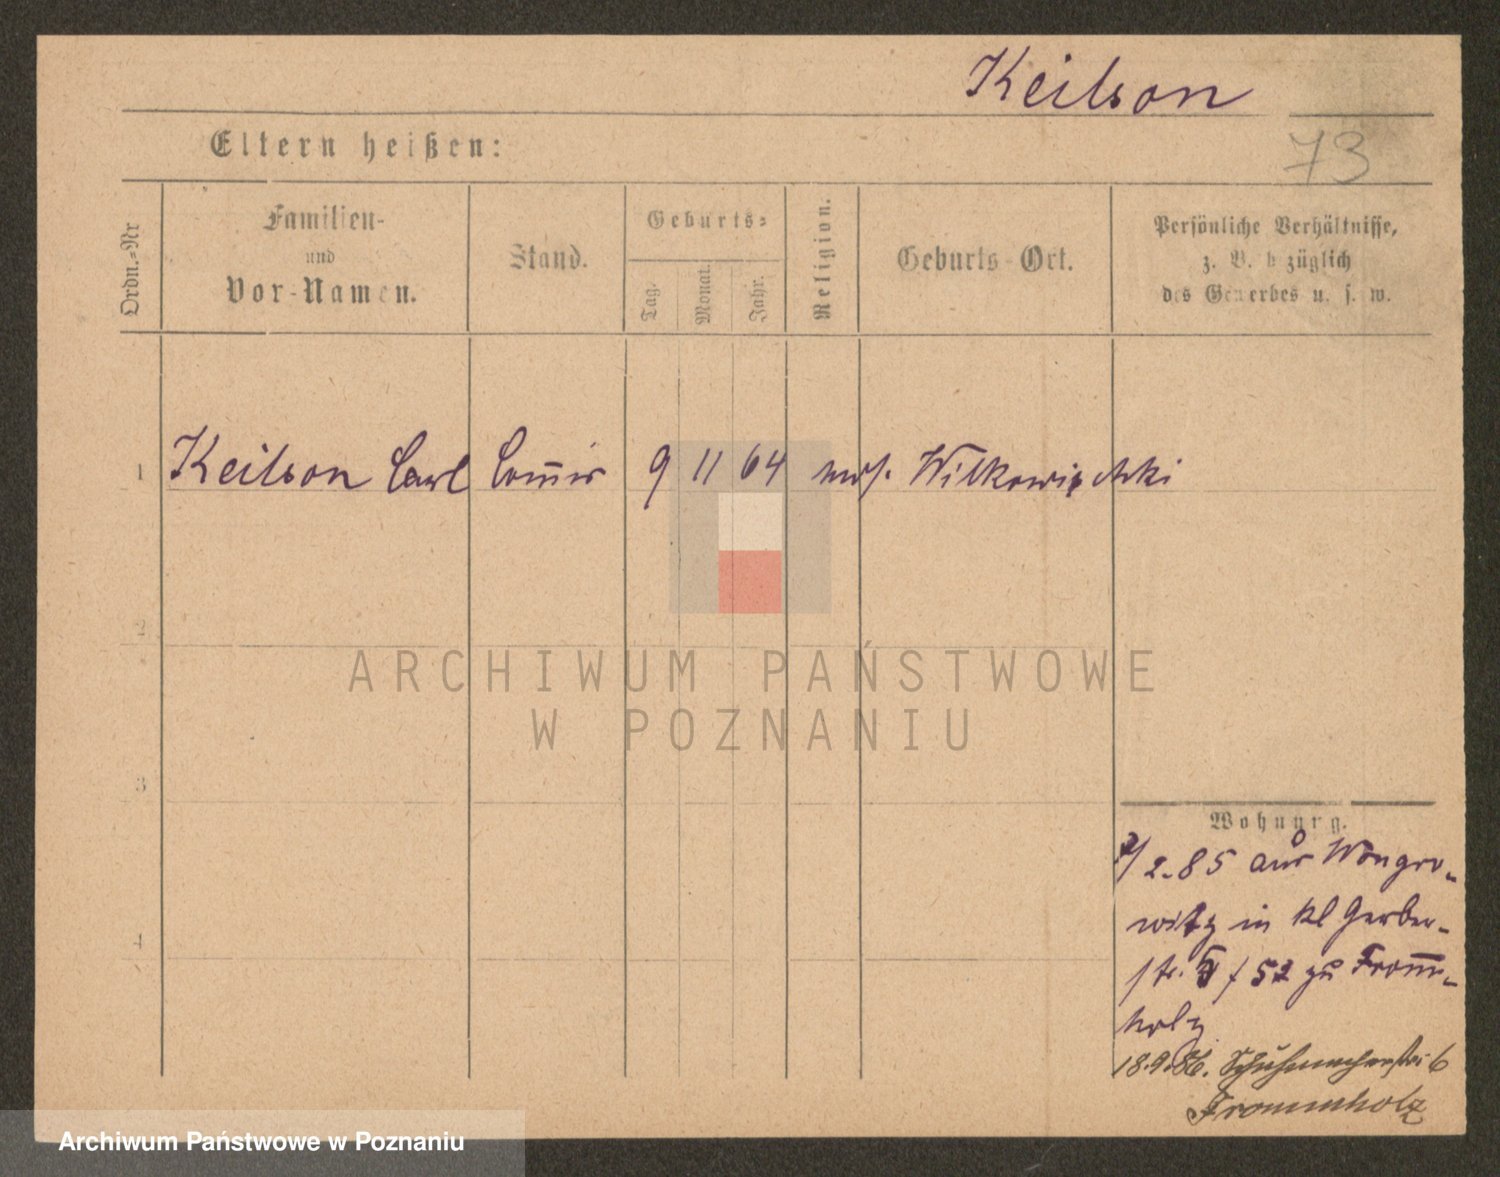 Keilson
73
Eltern heißen:
Ordn.=Nr
Familien-
und
Vor-Namen.
Stand.
Geburts=
Tag.
Monat.
Jahr.
Religion.
Geburts-Ort.
Persönliche Verhältnisse,
z. B. bezüglich
des Gewerbes u. s. w.
1 Keilson Carl Com̅is 9 11 64 mos. Wilkowischki
2
3
4
ARCHIWUM PAŃSTWOWE
W POZNANIU
Wohnung.
2.85 aus Wongro-
witz in kl Gerber-
str. zu From̅-
holz
18.9.86. Schuhmacherstr. 6
Frommholz
Archiwum Państwowe w Poznaniu